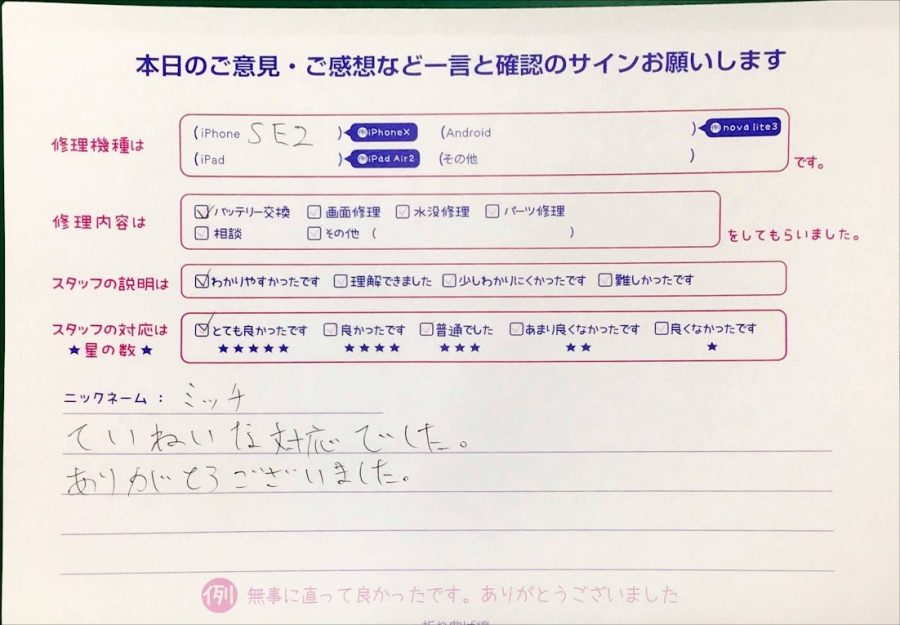 本日のご意見・ご感想など一言と確認のサインお願いします
修理機種は
(iPhone SE2 ) iPhoneX (Android ) nova lite3
(iPad ) iPad Air2 (その他 ) です。
修理内容は
☑バッテリー交換 □画面修理 □水没修理 □パーツ修理
□相談 □その他 ( ) をしてもらいました。
スタッフの説明は ☑わかりやすかったです □理解できました □少しわかりにくかったです □難しかったです
スタッフの対応は ☑とても良かったです □良かったです □普通でした □あまり良くなかったです □良くなかったです
★星の数★ ★★★★★ ★★★★ ★★★ ★★ ★
ニックネーム： ミッチ
ていねいな対応でした。
ありがとうございました。
例 無事に直って良かったです。ありがとうございました